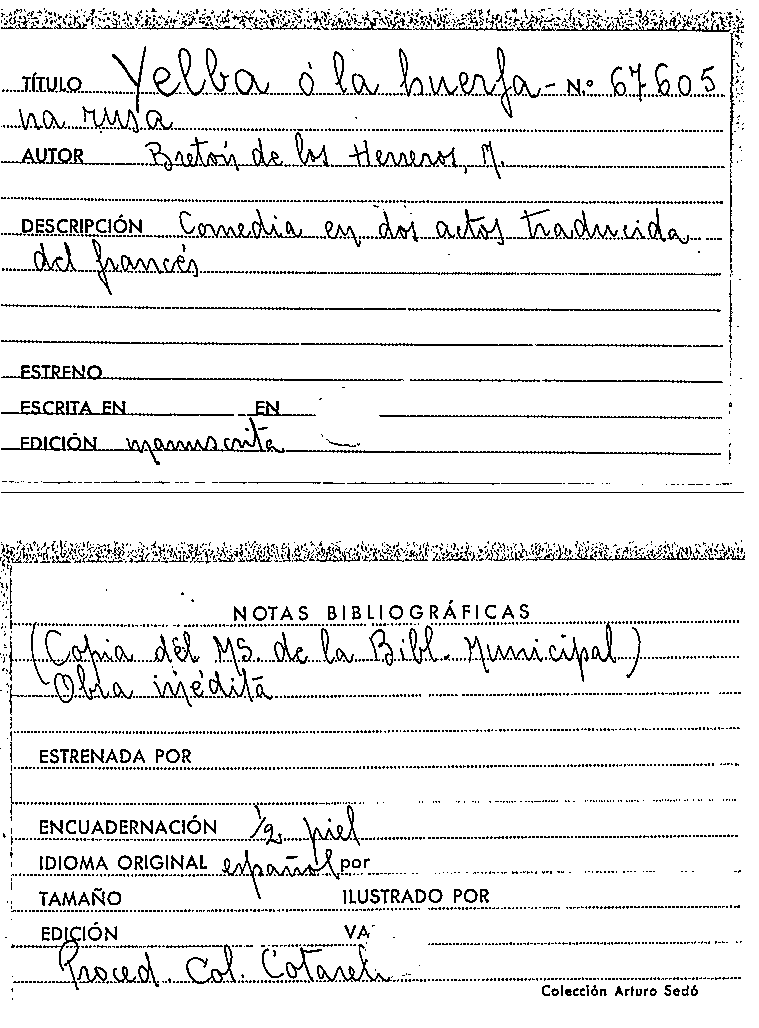 TÍTULO Yelba ó la huerfa- N.º 67605
na rusa
AUTOR Bretón de los Herreros, M.
DESCRIPCIÓN Comedia en dos actos traducida
del francés
ESTRENO
ESCRITA EN EN
EDICIÓN manuscrita
NOTAS BIBLIOGRÁFICAS
(Copia del MS. de la Bibl. Municipal)
Obra inédita
ESTRENADA POR
ENCUADERNACIÓN 1/2 piel
IDIOMA ORIGINAL español por
TAMAÑO ILUSTRADO POR
EDICIÓN VA
Proced. Col. Cotarelo
Colección Arturo Sedó